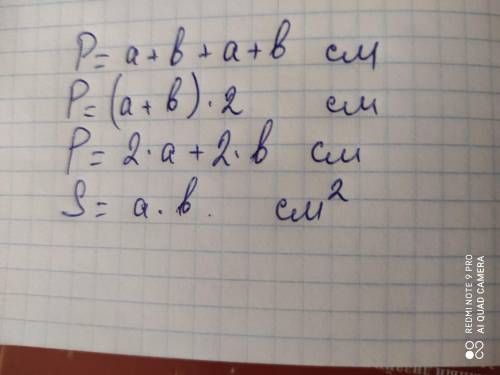 P= a + b + a + b см
P= (a + b) · 2 см
P= 2 · a + 2 · b см
S= a · b. см²
REDMI NOTE 9 PRO
AI QUAD CAMERA